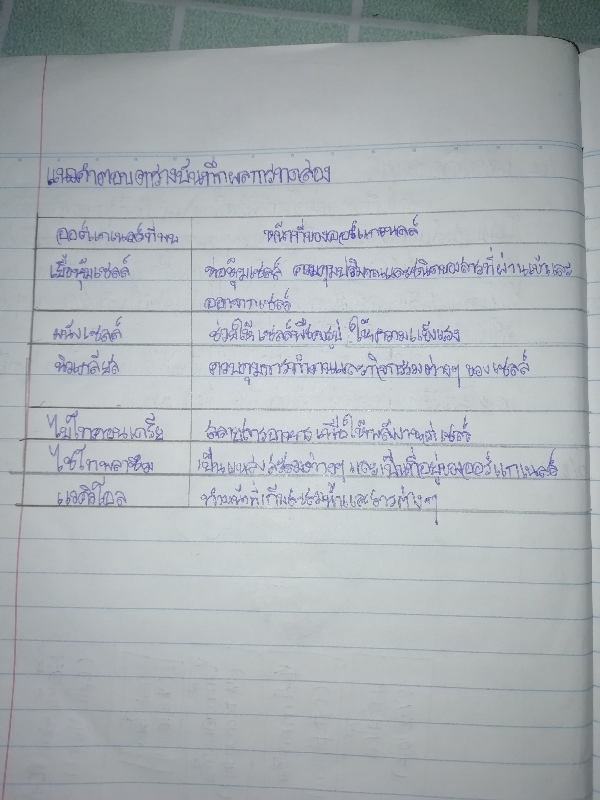 แนวคำตอบตารางบันทึกผลการทดลอง
ออร์แกเนลล์ที่พบ หน้าที่ของออร์แกเนลล์
เยื่อหุ้มเซลล์ ห่อหุ้มเซลล์ ควบคุมปริมาณและชนิดของสารที่ผ่านเข้าและ
ออกจากเซลล์
ผนังเซลล์ ช่วยให้เซลล์พืชคงรูป ให้ความแข็งแรง
นิวเคลียส ควบคุมการทำงานและกิจกรรมต่างๆ ของเซลล์
ไมโทคอนเดรีย สลายสารอาหารเพื่อให้พลังงานแก่เซลล์
ไซโทพลาซึม เป็นแหล่งรวมต่างๆ และเป็นที่อยู่ของออร์แกเนลล์
แวคิวโอล ทำหน้าที่เก็บสะสมน้ำและสารต่างๆ